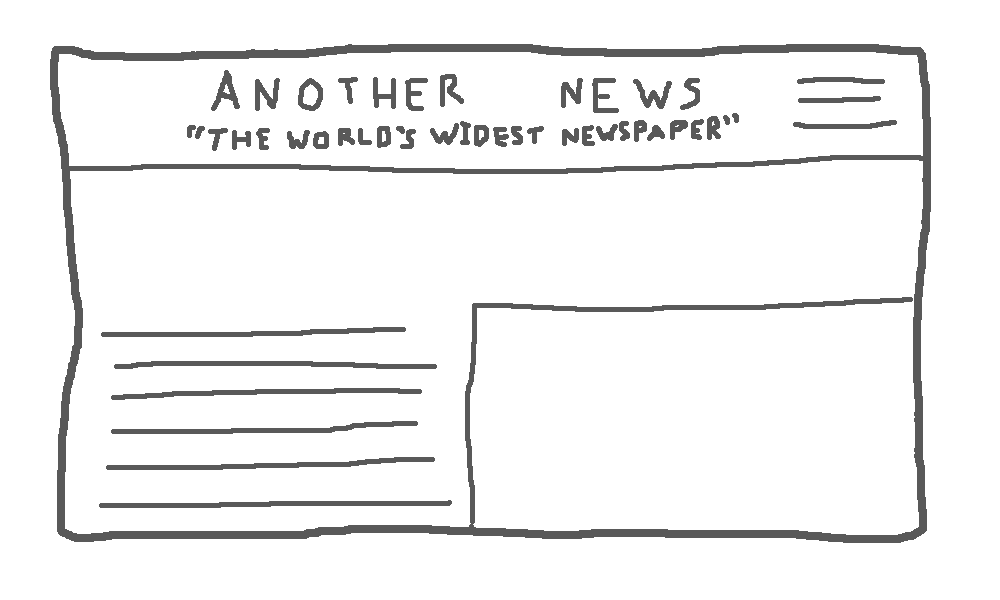 ANOTHER NEWS
"THE WORLD'S WIDEST NEWSPAPER"